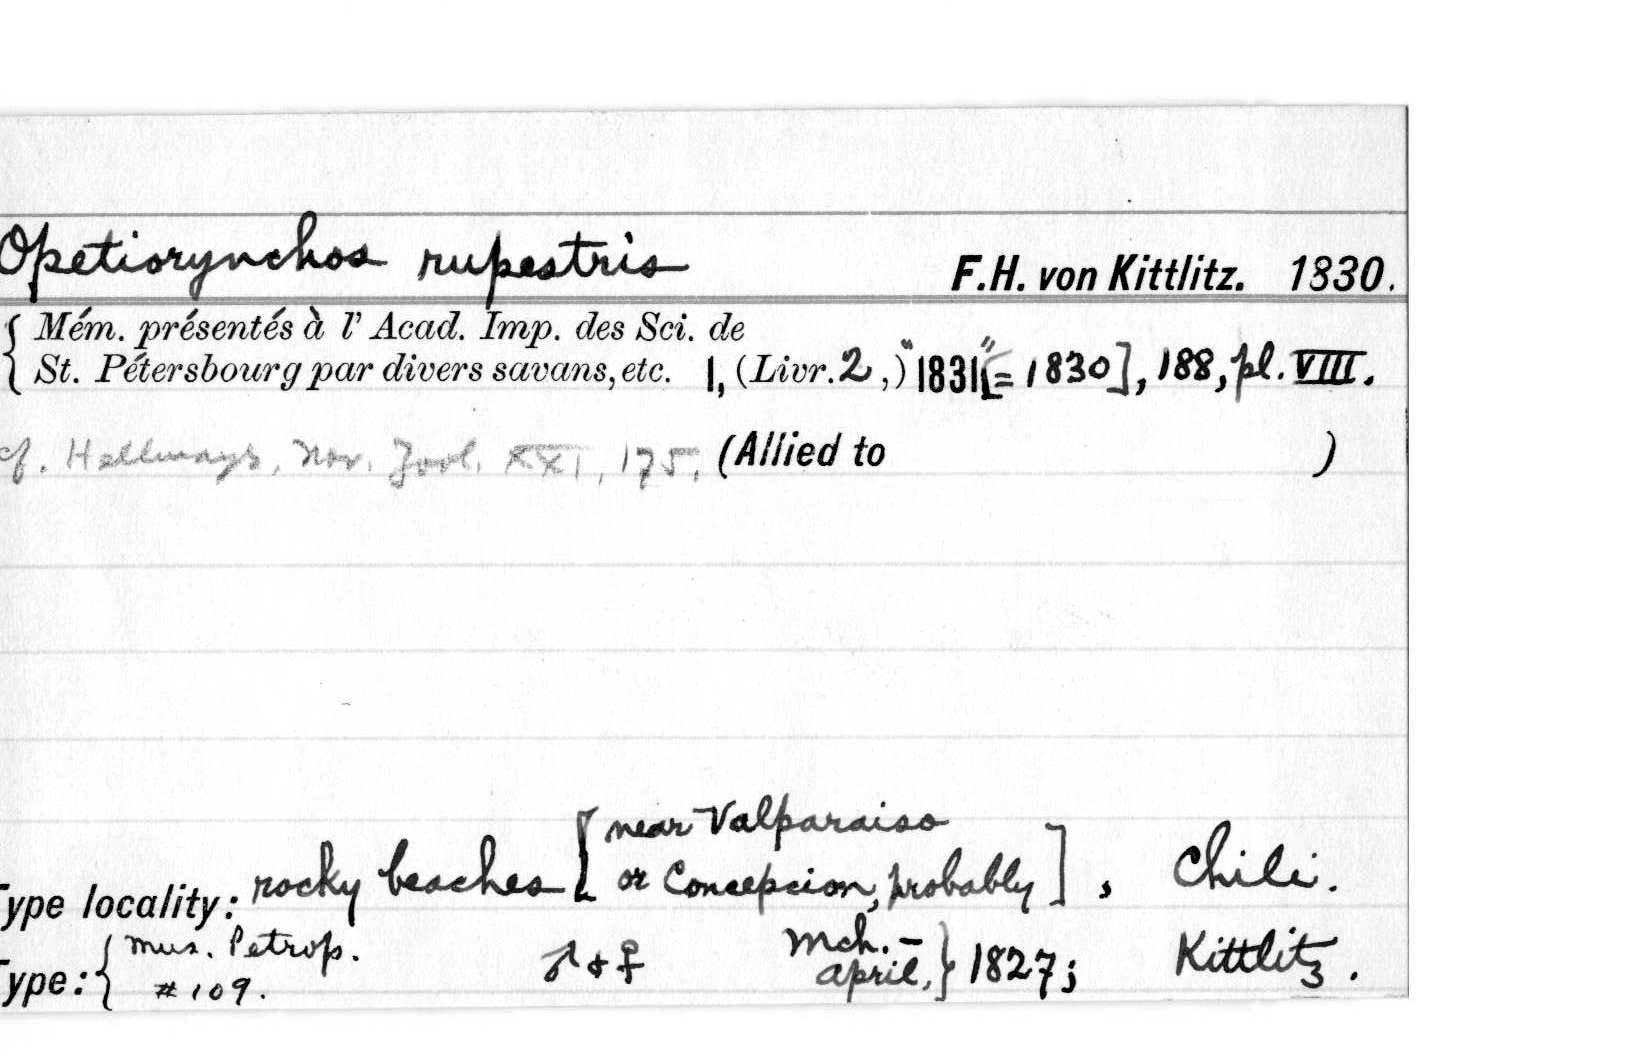 Opetiorynchos rupestris F.H. von Kittlitz. 1830.
{ Mém. présentés à l' Acad. Imp. des Sci. de
St. Pétersbourg par divers savans, etc. 1, (Livr. 2,) "1831" [= 1830], 188, pl. VIII.
cf. Hellmayr, Nov. Zool. XXI, 175, (Allied to )
[near Valparaiso
Type locality: rocky beaches or Concepcion, probably], Chili.
Type: { Mus. Petrop. ♂ & ♀ Mch. – } 1827; Kittlitz.
#109. april.